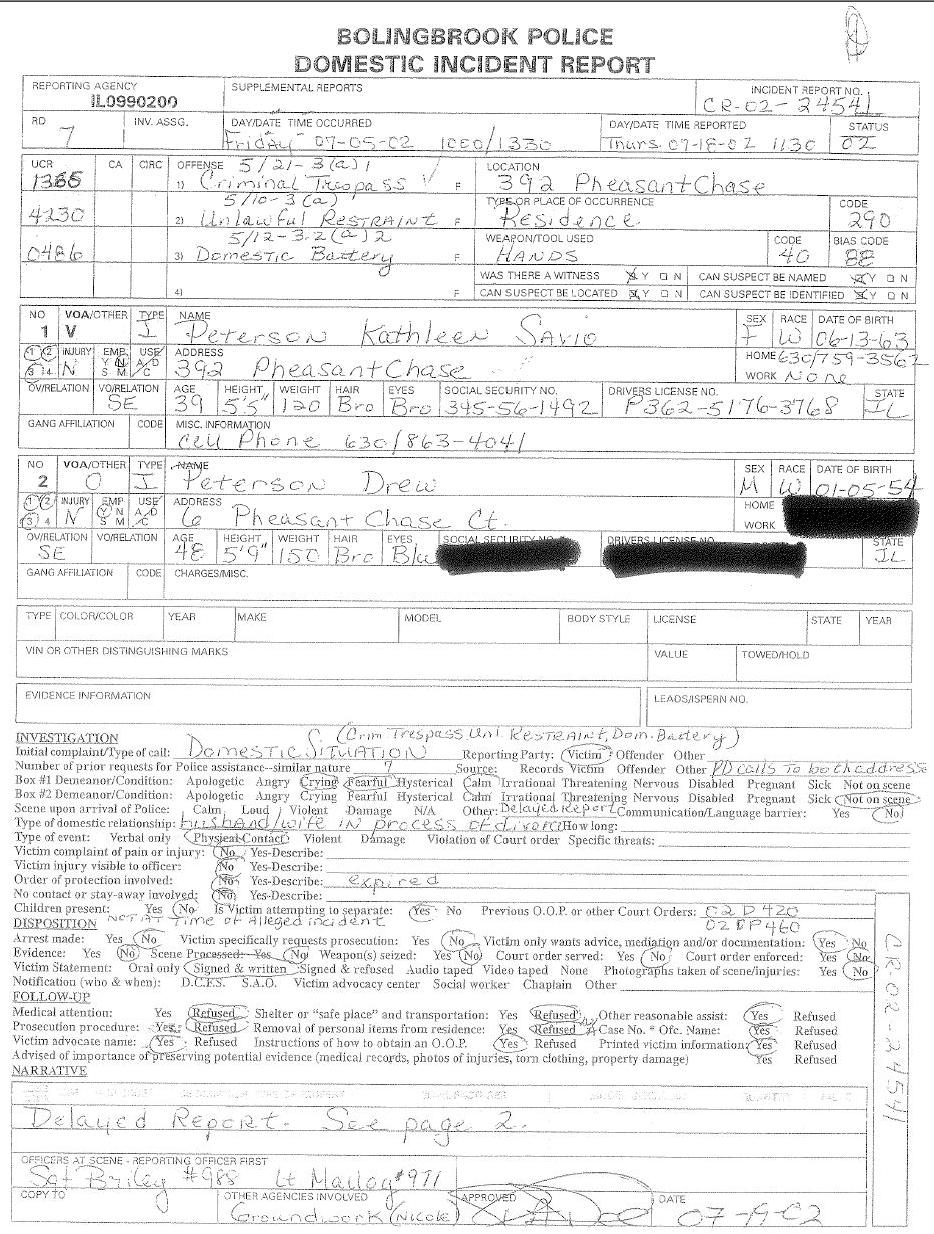 BOLINGBROOK POLICE
DOMESTIC INCIDENT REPORT
REPORTING AGENCY SUPPLEMENTAL REPORTS INCIDENT REPORT NO.
IL0990200 CR-02-24541
RD INV. ASSG. DAY/DATE TIME OCCURRED DAY/DATE TIME REPORTED STATUS
7 Friday 07-05-02 1000/1330 Thurs. 07-18-02 1130 02
UCR CA CIRC OFFENSE 5/21-3(a)1 LOCATION
1365 1) Criminal Trespass F 392 Pheasant Chase
5/10-3(a) TYPE OR PLACE OF OCCURRENCE CODE
4230 2) Unlawful RESTRAINT F Residence 290
5/12-3.2(a)2 WEAPON/TOOL USED CODE BIAS CODE
0486 3) Domestic Battery F HANDS 40 88
WAS THERE A WITNESS Y N CAN SUSPECT BE NAMED Y N
4) F CAN SUSPECT BE LOCATED Y N CAN SUSPECT BE IDENTIFIED Y N
NO VOA/OTHER TYPE NAME SEX RACE DATE OF BIRTH
1 V I Peterson Kathleen SAVIO F W 06-13-63
1 2 INJURY EMP USE ADDRESS HOME 630/759-3562
3 4 N Y N S M A/D /C 392 Pheasant Chase WORK None
OV/RELATION VO/RELATION AGE HEIGHT WEIGHT HAIR EYES SOCIAL SECURITY NO. DRIVERS LICENSE NO. STATE
SE 39 5'5" 120 Bro Bro 345-56-1492 P362-5176-3768 IL
GANG AFFILIATION CODE MISC. INFORMATION
Cell Phone 630/863-4041
NO VOA/OTHER TYPE NAME SEX RACE DATE OF BIRTH
2 O I Peterson Drew M W 01-05-54
1 2 INJURY EMP USE ADDRESS HOME
3 4 N Y N S M A/D /C 6 Pheasant Chase Ct. WORK
OV/RELATION VO/RELATION AGE HEIGHT WEIGHT HAIR EYES SOCIAL SECURITY NO. DRIVERS LICENSE NO. STATE
SE 48 5'9" 150 Bro Blu IL
GANG AFFILIATION CODE CHARGES/MISC.
TYPE COLOR/COLOR YEAR MAKE MODEL BODY STYLE LICENSE STATE YEAR
VIN OR OTHER DISTINGUISHING MARKS VALUE TOWED/HOLD
EVIDENCE INFORMATION LEADS/ISPERN NO.
(Crim Trespass Unl RESTRAINT, Dom. Battery)
INVESTIGATION
Initial complaint/Type of call: DOMESTIC SITUATION Reporting Party: Victim Offender Other
Number of prior requests for Police assistance--similar nature 7 Source: Records Victim Offender Other PD calls To both addresse
Box #1 Demeanor/Condition: Apologetic Angry Crying Fearful Hysterical Calm Irrational Threatening Nervous Disabled Pregnant Sick Not on scene
Box #2 Demeanor/Condition: Apologetic Angry Crying Fearful Hysterical Calm Irrational Threatening Nervous Disabled Pregnant Sick Not on scene
Scene upon arrival of Police: Calm Loud Violent Damage N/A Other: Delayed Report Communication/Language barrier: Yes No
Type of domestic relationship: Husband/wife IN process of divorce How long:
Type of event: Verbal only Physical Contact Violent Damage Violation of Court order Specific threats:
Victim complaint of pain or injury: No Yes-Describe:
Victim injury visible to officer: No Yes-Describe:
Order of protection involved: No Yes-Describe: expired
No contact or stay-away involved: No Yes-Describe:
Children present: Yes No Is Victim attempting to separate: Yes No Previous O.O.P. or other Court Orders: 02 D 420
DISPOSITION NOT AT Time of Alleged incident 02 OP 460
Arrest made: Yes No Victim specifically requests prosecution: Yes No Victim only wants advice, mediation and/or documentation: Yes No
Evidence: Yes No Scene Processed Yes No Weapon(s) seized: Yes No Court order served: Yes No Court order enforced: Yes No
Victim Statement: Oral only Signed & written Signed & refused Audio taped Video taped None Photographs taken of scene/injuries: Yes No
Notification (who & when): D.C.F.S. S.A.O. Victim advocacy center Social worker Chaplain Other
FOLLOW-UP
Medical attention: Yes Refused Shelter or "safe place" and transportation: Yes Refused Other reasonable assist: Yes Refused
Prosecution procedure: Yes Refused Removal of personal items from residence: Yes Refused Case No. * Ofc. Name: Yes Refused
Victim advocate name: Yes Refused Instructions of how to obtain an O.O.P. Yes Refused Printed victim information: Yes Refused
Advised of importance of preserving potential evidence (medical records, photos of injuries, torn clothing, property damage) Yes Refused
NARRATIVE
Delayed Report. See page 2.
OFFICERS AT SCENE - REPORTING OFFICER FIRST
Sgt Briley #988 Lt Mailoy #971
COPY TO OTHER AGENCIES INVOLVED APPROVED DATE
Groundwork (Nicole) 07-19-02
CR-02-24541